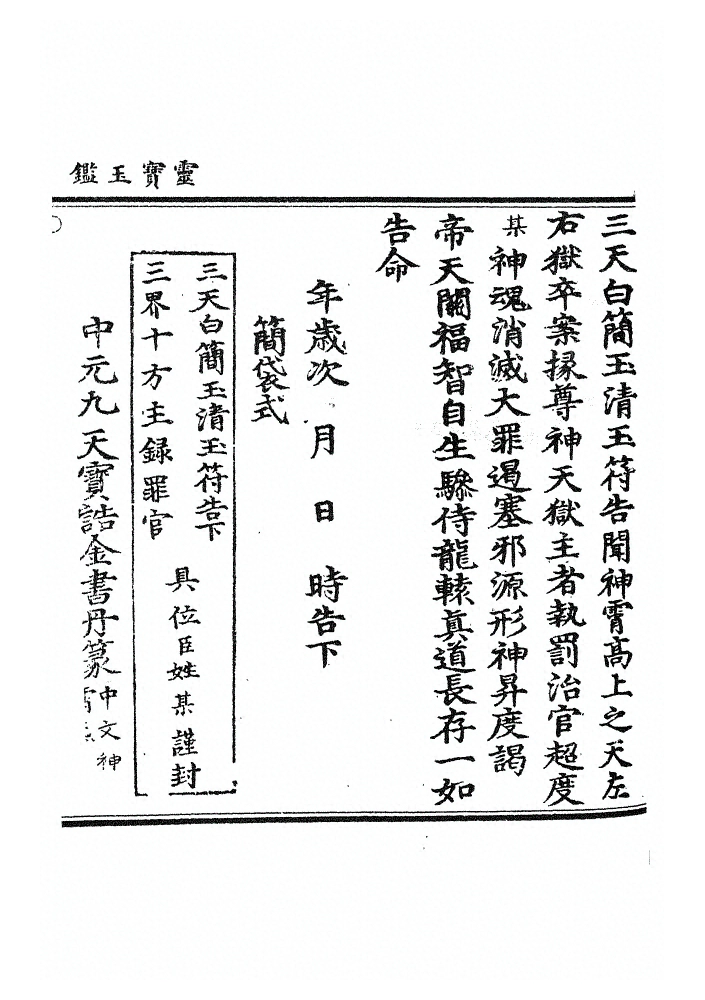 靈寶玉鑑
三天白簡玉清玉符告聞神霄高上之天左
右獄卒案掾尊神天獄主者執罰治官超度
某神魂消滅大罪遏塞邪源形神昇度謁
帝天關福智自生驂侍龍轅真道長存一如
告命
年歲次 月 日 時告下
簡袋式
三天白簡玉清玉符告下
三界十方主錄罪官
具位臣姓某謹封
中元九天寶誥金書丹篆中文神霄